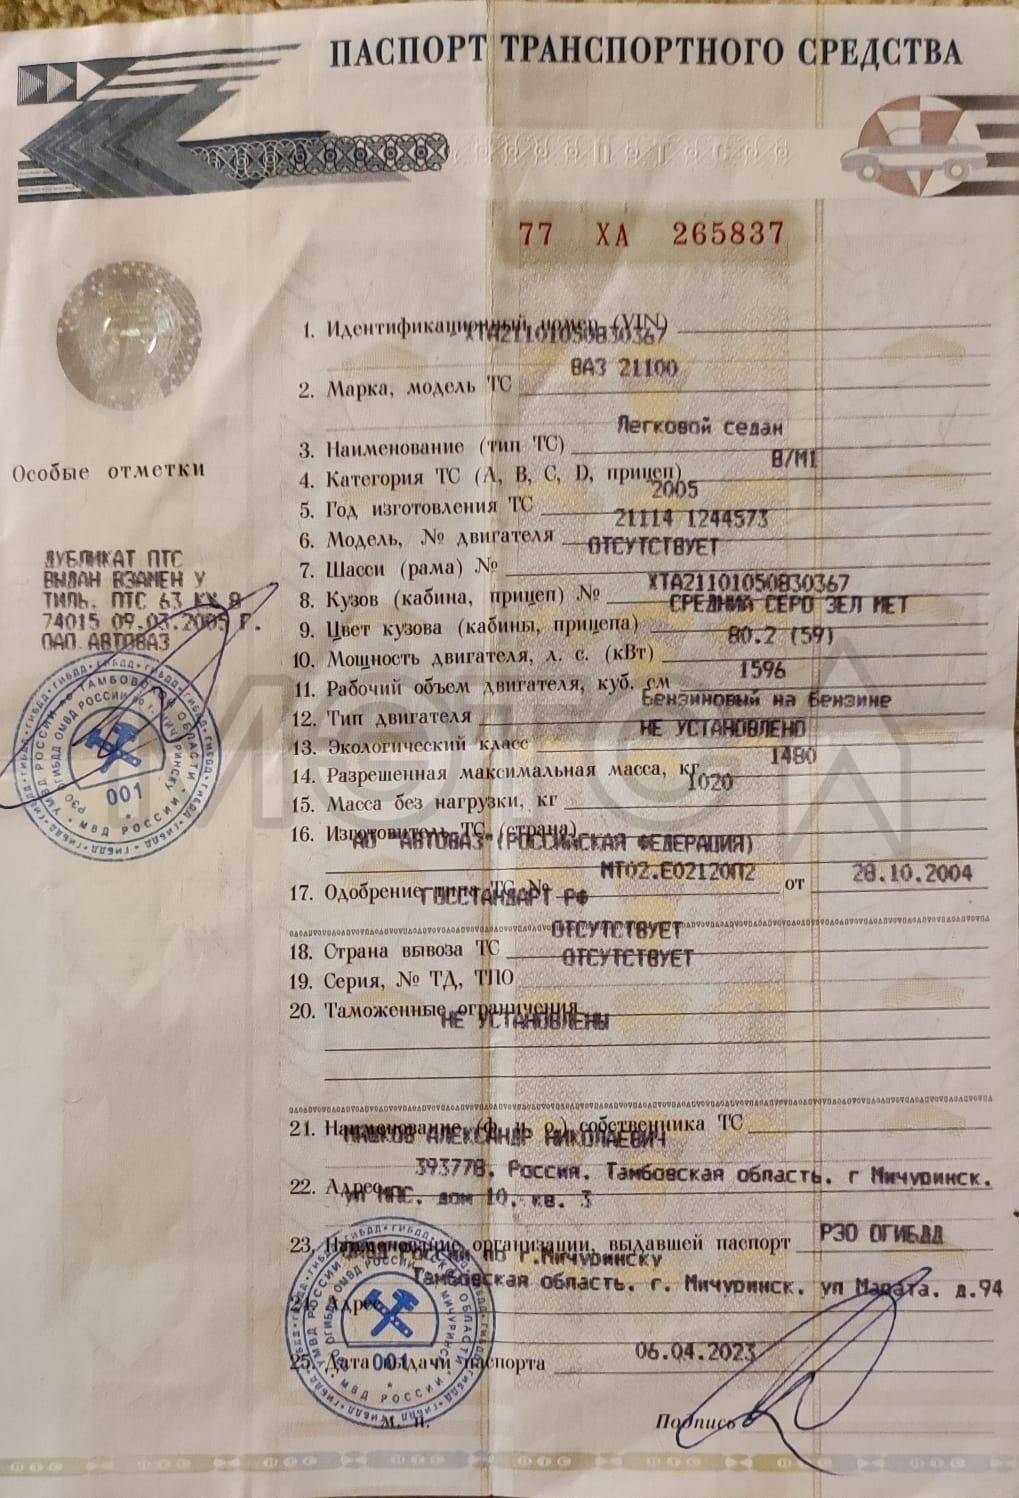 ПАСПОРТ ТРАНСПОРТНОГО СРЕДСТВА
77 ХА 265837
1. Идентификационный номер (VIN)
XTA21101050830367
ВАЗ 21100
2. Марка, модель ТС
Легковой седан
3. Наименование (тип ТС)
B/M1
4. Категория ТС (А, В, С, D, прицеп)
2005
5. Год изготовления ТС
21114 1244573
6. Модель, № двигателя
ОТСУТСТВУЕТ
7. Шасси (рама) №
XTA21101050830367
8. Кузов (кабина, прицеп) №
СРЕДНИЙ СЕРО ЗЕЛ МЕТ
9. Цвет кузова (кабины, прицепа)
80.2 (59)
10. Мощность двигателя, л. с. (кВт)
1596
11. Рабочий объем двигателя, куб. см
Бензиновый на бензине
12. Тип двигателя
НЕ УСТАНОВЛЕНО
13. Экологический класс
1480
14. Разрешенная максимальная масса, кг
1020
15. Масса без нагрузки, кг
16. Изготовитель ТС (страна)
АО "АВТОВАЗ" (РОССИЙСКАЯ ФЕДЕРАЦИЯ)
МТ02.Е02120П2 28.10.2004
17. Одобрение типа ТС № от
ГОССТАНДАРТ РФ
ОТСУТСТВУЕТ
18. Страна вывоза ТС
ОТСУТСТВУЕТ
19. Серия, № ТД, ТПО
20. Таможенные ограничения
НЕ УСТАНОВЛЕНЫ
21. Наименование (ф. и. о.) собственника ТС
АЛЕКСАНДР НИКОЛАЕВИЧ
393778, Россия, Тамбовская область, г Мичуринск,
22. Адрес
ул МПС, дом 10, кв. 3
РЭО ОГИБДД
23. Наименование организации, выдавшей паспорт
России по г.Мичуринску
Тамбовская область, г. Мичуринск, ул Марата, д.94
24. Адрес
06.04.2023
25. Дата выдачи паспорта
М. П. Подпись
Особые отметки
ДУБЛИКАТ ПТС
ВЫДАН ВЗАМЕН У
ТИЛЬ. ПТС 63 КХ 8
74015 09.03.2005 Г.
ОАО АВТОВАЗ
001
МВД РОССИИ
001
МВД РОССИИ